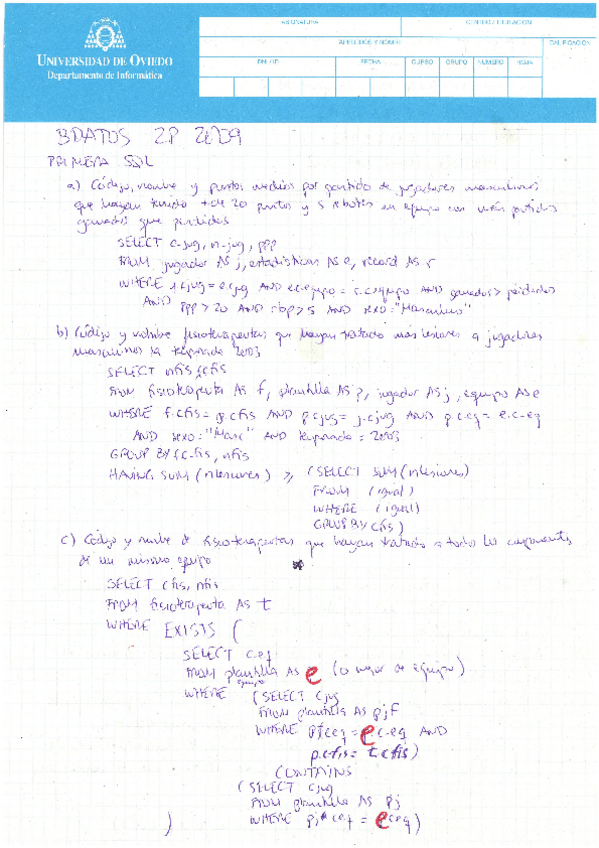 ASIGNATURA CENTRO / TITULACIÓN
UNIVERSIDAD DE OVIEDO
Departamento de Informática
APELLIDOS Y NOMBRE CALIFICACIÓN
DNI / UO FECHA CURSO GRUPO NÚMERO
BDATOS 2P 2009
PRIMERA SQL
a) Código, nombre y puntos medios por partido de jugadores masculinos
que hayan tenido + de 20 puntos y 5 rebotes en equipo con más partidos
ganados que perdidos
SELECT c-jug, n-jug, ppp
FROM jugador AS j, estadísticas AS e, record AS r
WHERE j.cjug = e.cjug AND e.cequipo = r.cequipo AND ganados > perdidos
AND ppp > 20 AND rbp > 5 AND sexo = "Masculino"
b) Código y nombre fisioterapeutas que hayan tratado más lesiones a jugadores
masculinos la temporada 2003
SELECT nfis, cfis
FROM fisioterapeuta AS f, plantilla AS p, jugador AS j, equipo AS e
WHERE f.cfis = p.cfis AND p.cjug = j.cjug AND p.c.eq = e.c-eq
AND sexo = "Masc" AND temporada = 2003
GROUP BY f.c-fis, nfis
HAVING SUM (nlesiones) >, (SELECT SUM (nlesiones)
FROM (igual)
WHERE (igual)
GROUP BY cfis)
c) Código y nombre de fisioterapeutas que hayan tratado a todos los componentes
de un mismo equipo
SELECT cfis, nfis
FROM fisioterapeuta AS t
WHERE EXISTS (
SELECT c.eq
FROM plantilla AS e (o mejor de equipo)
equipo
WHERE (SELECT cjug
FROM plantilla AS pjf
WHERE pjf.ceq = e.c-eq AND
p.c-fis = t.cfis)
CONTAINS
(SELECT cjug
FROM plantilla AS pj
WHERE pj.ceq = e.ceq)
)